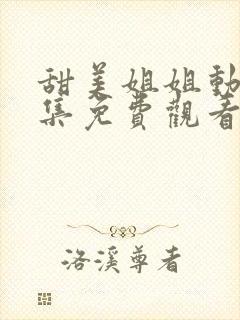 甜美姐姐動
集免費觀看
洛溪尊者